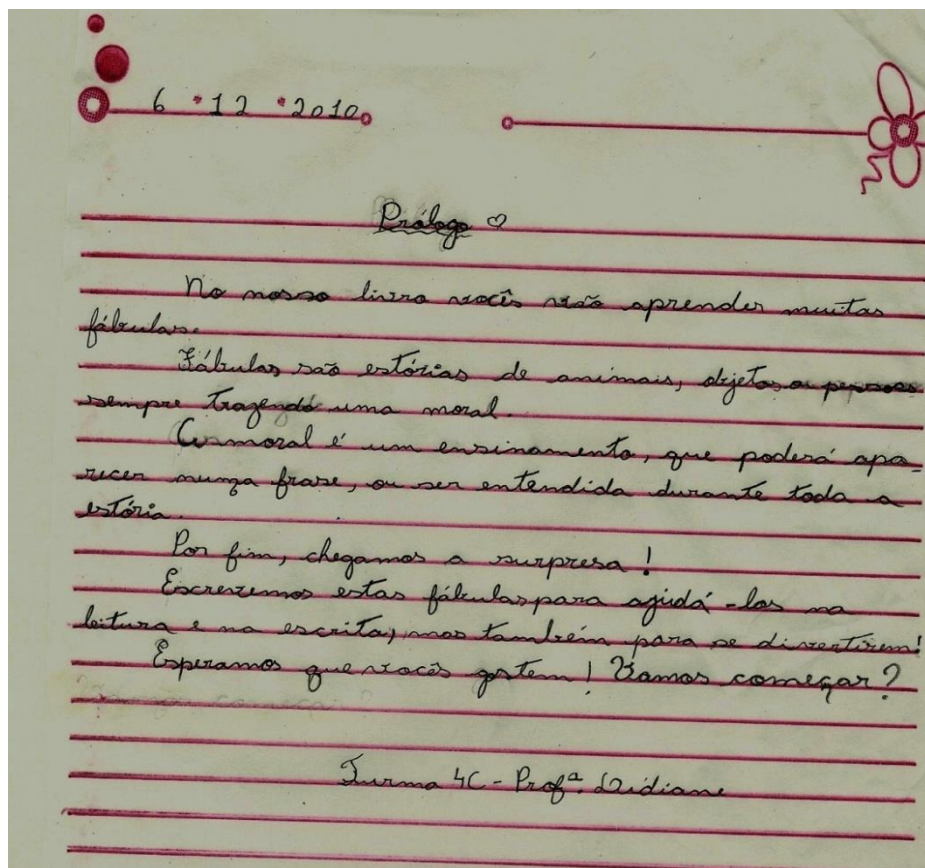 6 12 2010
Prólogo ♡
No nosso livro vocês vão aprender muitas
fábulas.
Fábulas são estórias de animais, objetos ou pessoas
sempre trazendo uma moral.
A moral é um ensinamento, que poderá apa-
recer numa frase, ou ser entendida durante toda a
estória.
Por fim, chegamos a surpresa!
Escrevemos estas fábulas para ajudá-los na
leitura e na escrita, mas também para se divertirem!
Esperamos que vocês gostem! Vamos começar?
Turma 4C - Profª. Lidiane